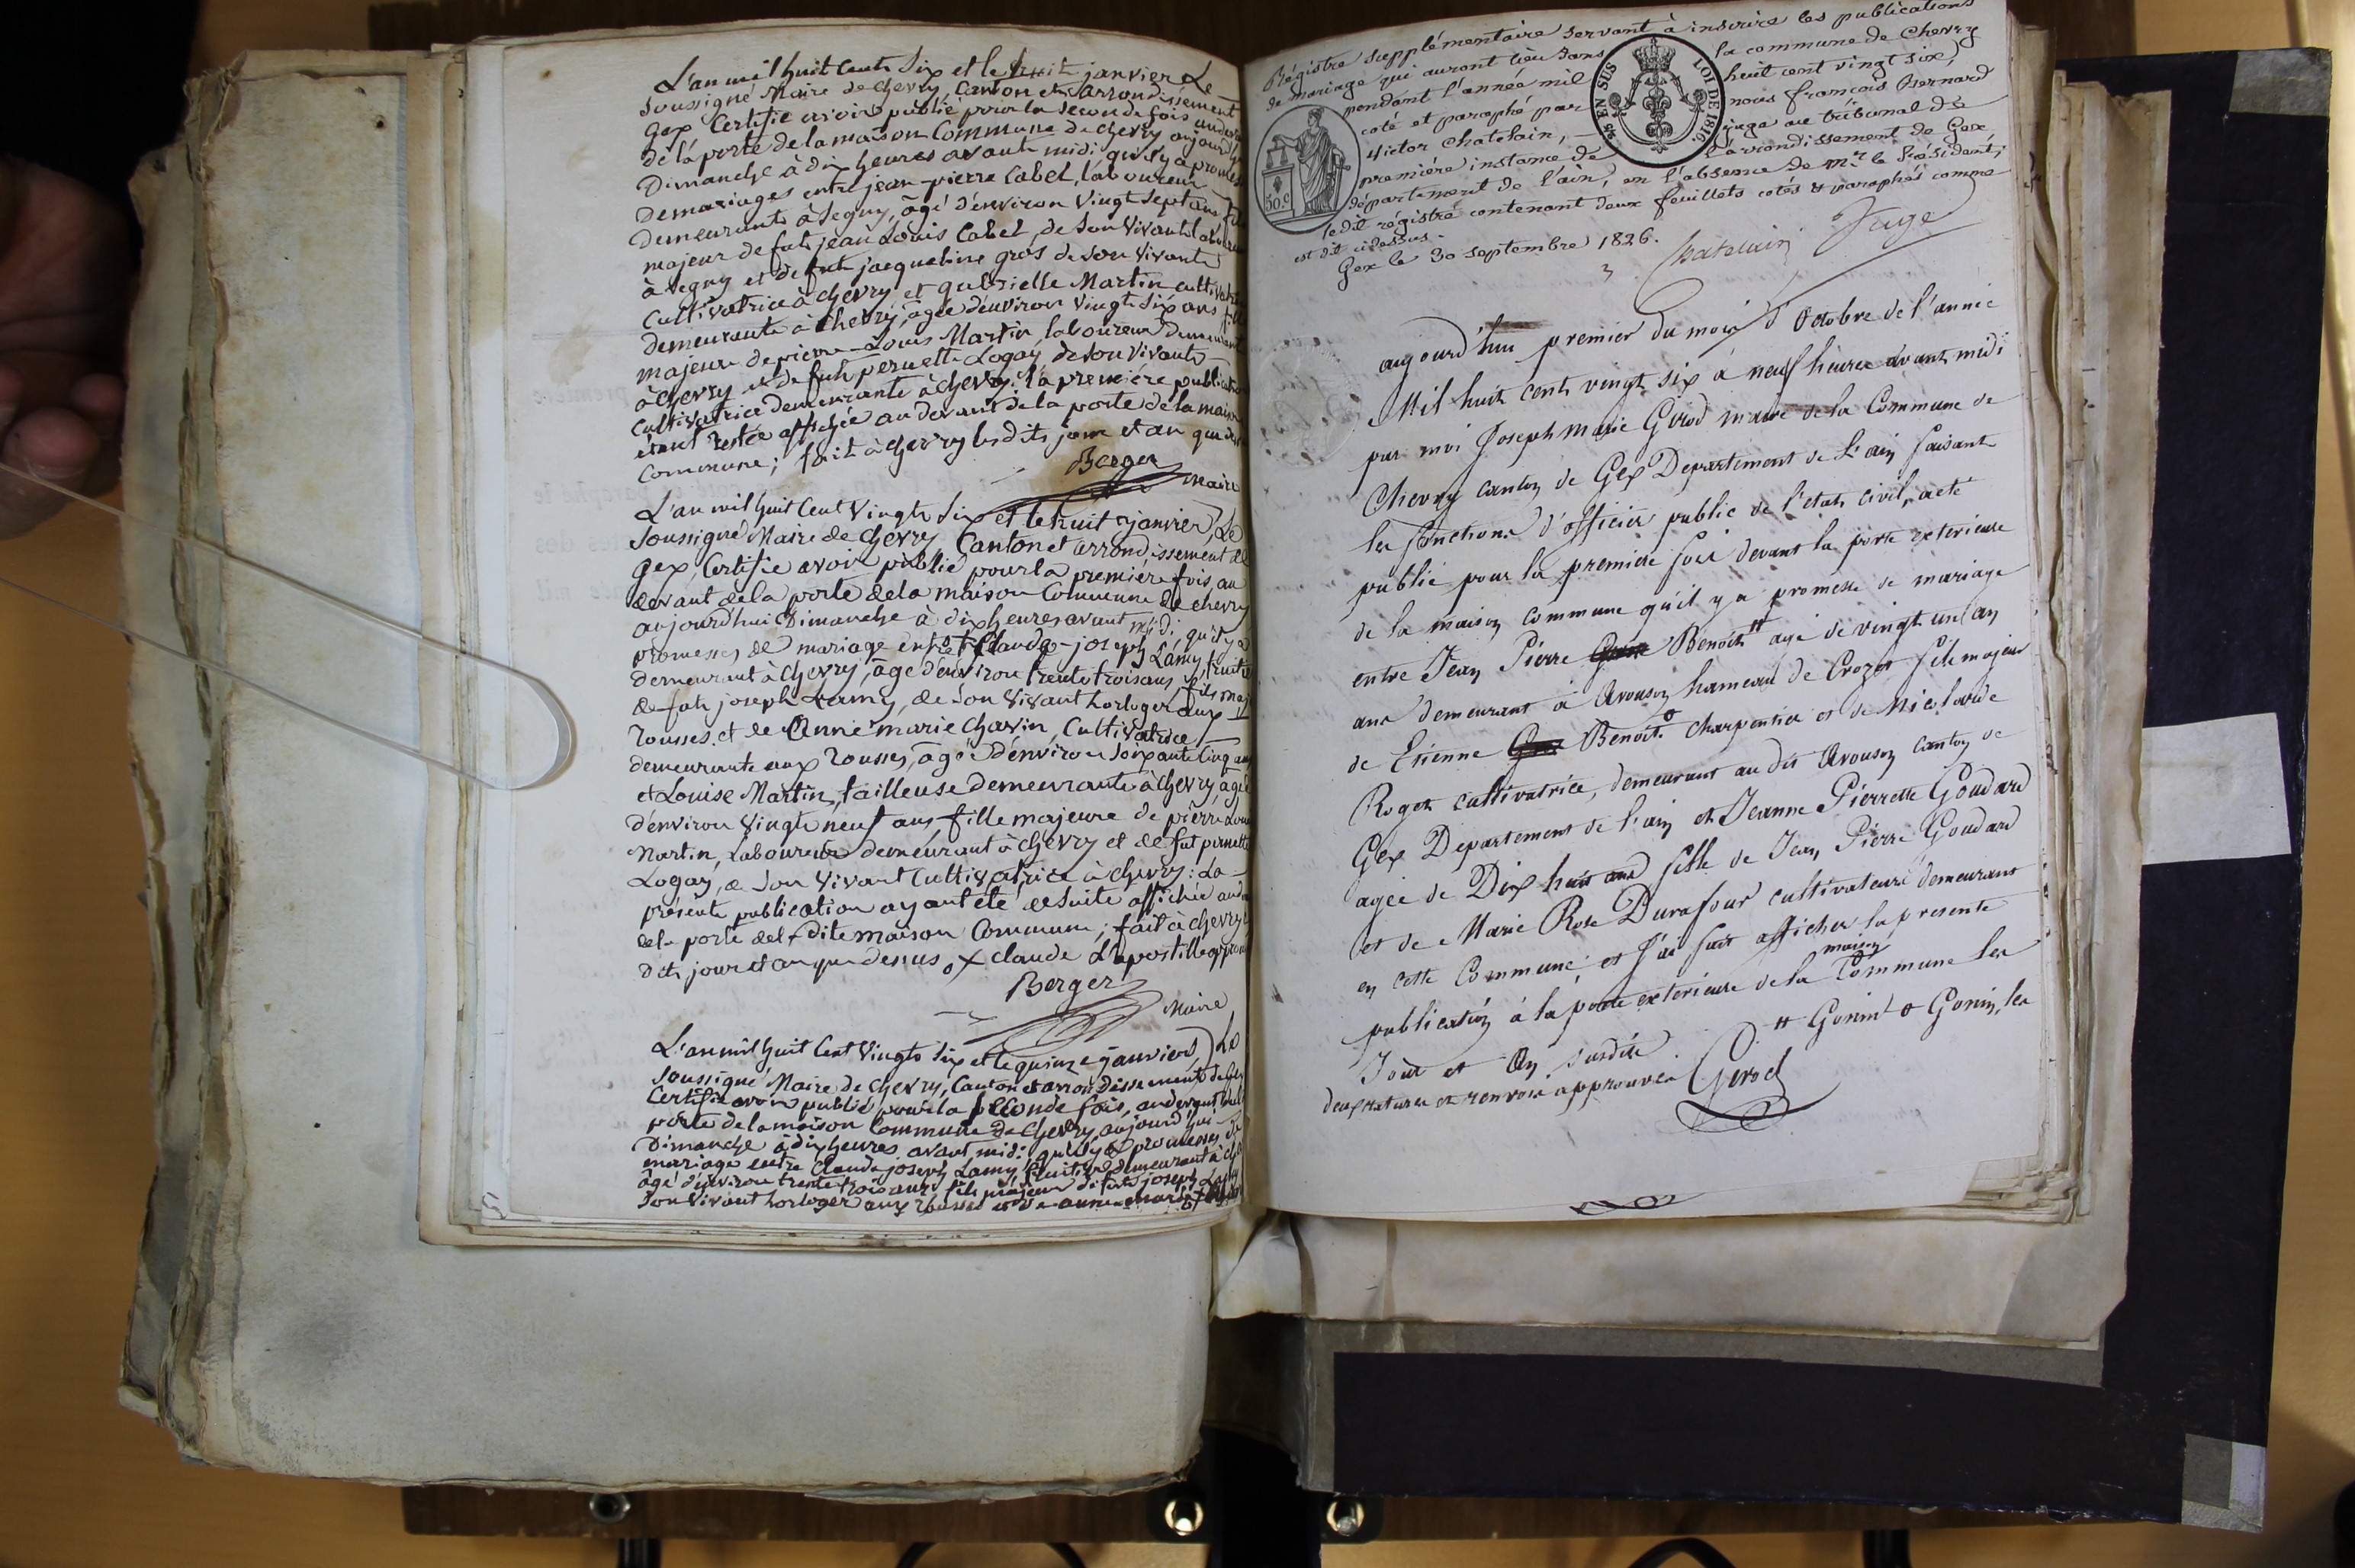 L'an mil huit Cents Six et le huit janvier Le
Soussigné Maire de Chevry, Canton et arrondissement
Gex Certifie avoir publié pour la Seconde fois au devant
de la porte de la maison Commune de Chevry aujourd'hui
Dimanche à dix heures avant midi qu'il y a promesses
de mariages entre jean-pierre Cabet, laboureur
demeurants à Segny, âgé d'environ Vingt Sept ans fils
majeur de fut jean Louis Cabet, de Son Vivant laboureur
à Segny et de fut jacqueline gros de Son Vivante
Cultivatrice à chevry et gabrielle Martin cultivatrice
demeurante à Chevry, âgée d'environ Vingt Six ans fille
majeure de pierre-Louis Martin, laboureur Demeurant
à chevry et de fut pernette Logay de Son Vivante
Cultivatrice demeurante à chevry. la première publication
étant restée affichée au devant de la porte de la maison
Commune; fait à Chevry les dits jour et an que dessus
Berger Maire
L'an mil huit Cent Vingts Six et le huit janvier, Le
Soussigné Maire de Chevry, Canton et arrondissement de
Gex Certifie avoir publié pour la première fois au
devant de la porte de la maison Commune de chevry
aujourd'hui Dimanche à dix heures avant midi, qu'il y a
promesses de mariage entre Claude-joseph Lamy, fruitier
demeurant à Chevry, âgé d'environ trente trois ans, fils maj
de fut joseph Lamy, de Son Vivant horloger aux
rousses et de Anne marie Chavin, Cultivatrice
demeurante aux rousses, âgé d'environ Soixante Cinq ans
et Louise Martin, tailleuse demeurante à Chevry, âgée
d'environ Vingt neuf ans fille majeure de pierre Louis
Martin, Laboureur demeurant à Chevry et de fut pernette
Logay, de Son Vivant Cultivatrice à chevry: La
présente publication ayant été de Suite affichée au devant
de la porte de la dite maison Commune; fait à Chevry
dits jour et an que dessus, x claude L'apostille approuvé
Berger
Maire
L'an mil huit Cent Vingts Six et le quinze janvier, Le
Soussigné Maire de Chevry, Canton et arrondissement de Gex
Certifie avoir publié pour la Seconde fois, au devant de la
porte de la maison Commune de Chevry, aujourd'hui
Dimanche à dix heures avant midi qu'il y a promesses de
mariage entre Claude joseph Lamy fruitier demeurant à
âgé d'environ trente trois ans, fils majeur de fut joseph Lamy
Son Vivant horloger aux rousses et de anne marie
Régistre supplémentaire servant à inscrire les publications
de mariage qui auront lieu dans la commune de Chevry
pendant l'année mil huit cent vingt six,
coté et paraphé par nous françois Bernard
Victor Chatelain, juge au tribunal de
première instance de l'arrondissement de Gex,
département de l'ain, en l'absence de Mr. le Président;
le dit régistre contenant deux feuillets cotés & paraphés comme
est dit cidessus.
Gex le 30 septembre 1826.
Chatelain Juge
25 EN SUS
LOI DE 1816.
50.c
aujourd'hui premier du mois d'Octobre de l'année
Mil huit cent vingt six à neuf heures avant midi
par moi Joseph Marie Girod maire de la Commune de
Chevry canton de Gex Departement de l'ain faisant
les fonctions d'officier public de l'état civil, a été
publié pour la premiere fois devant la porte exterieure
de la maison commune qu'il y a promesse de mariage
entre Jean Pierre Benoit # agé de vingt un an
ans demeurant à Avouson hameau de Crozet fils majeur
de Etienne Benoit o charpentier et de Nicolarde
Roget cultivatrice, demeurant au dit Avouson canton de
Gex Departement de l'ain et Jeanne Pierrette Goudard
agée de Dix huit ans fille de Jean Pierre Goudard
et de Marie Rose Durafour cultivateurs demeurant
en cette Commune et j'ai fait afficher la presente
publication à la porte exterieure de la maison Commune les
Jour et An susdits. # Gonin o Gonin, les
deux ratures et renvois approuvés Girod